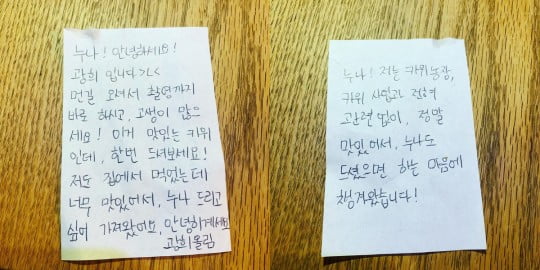 누나! 안녕하세요!
광희 입니다><
먼길 오셔서 촬영까지
바로 하시고, 고생이 많으
세요! 이거 맛있는 키위
인데, 한번 드셔보세요!
저도 집에서 먹었는데
너무 맛있어서, 누나 드리고
싶어 가져왔어요, 안녕히계세요
광희올림
누나! 저는 키위농장,
키위 사업과 전혀
관련 없이, 정말
맛있어서, 누나도
드셨으면 하는 마음에
챙겨왔습니다!